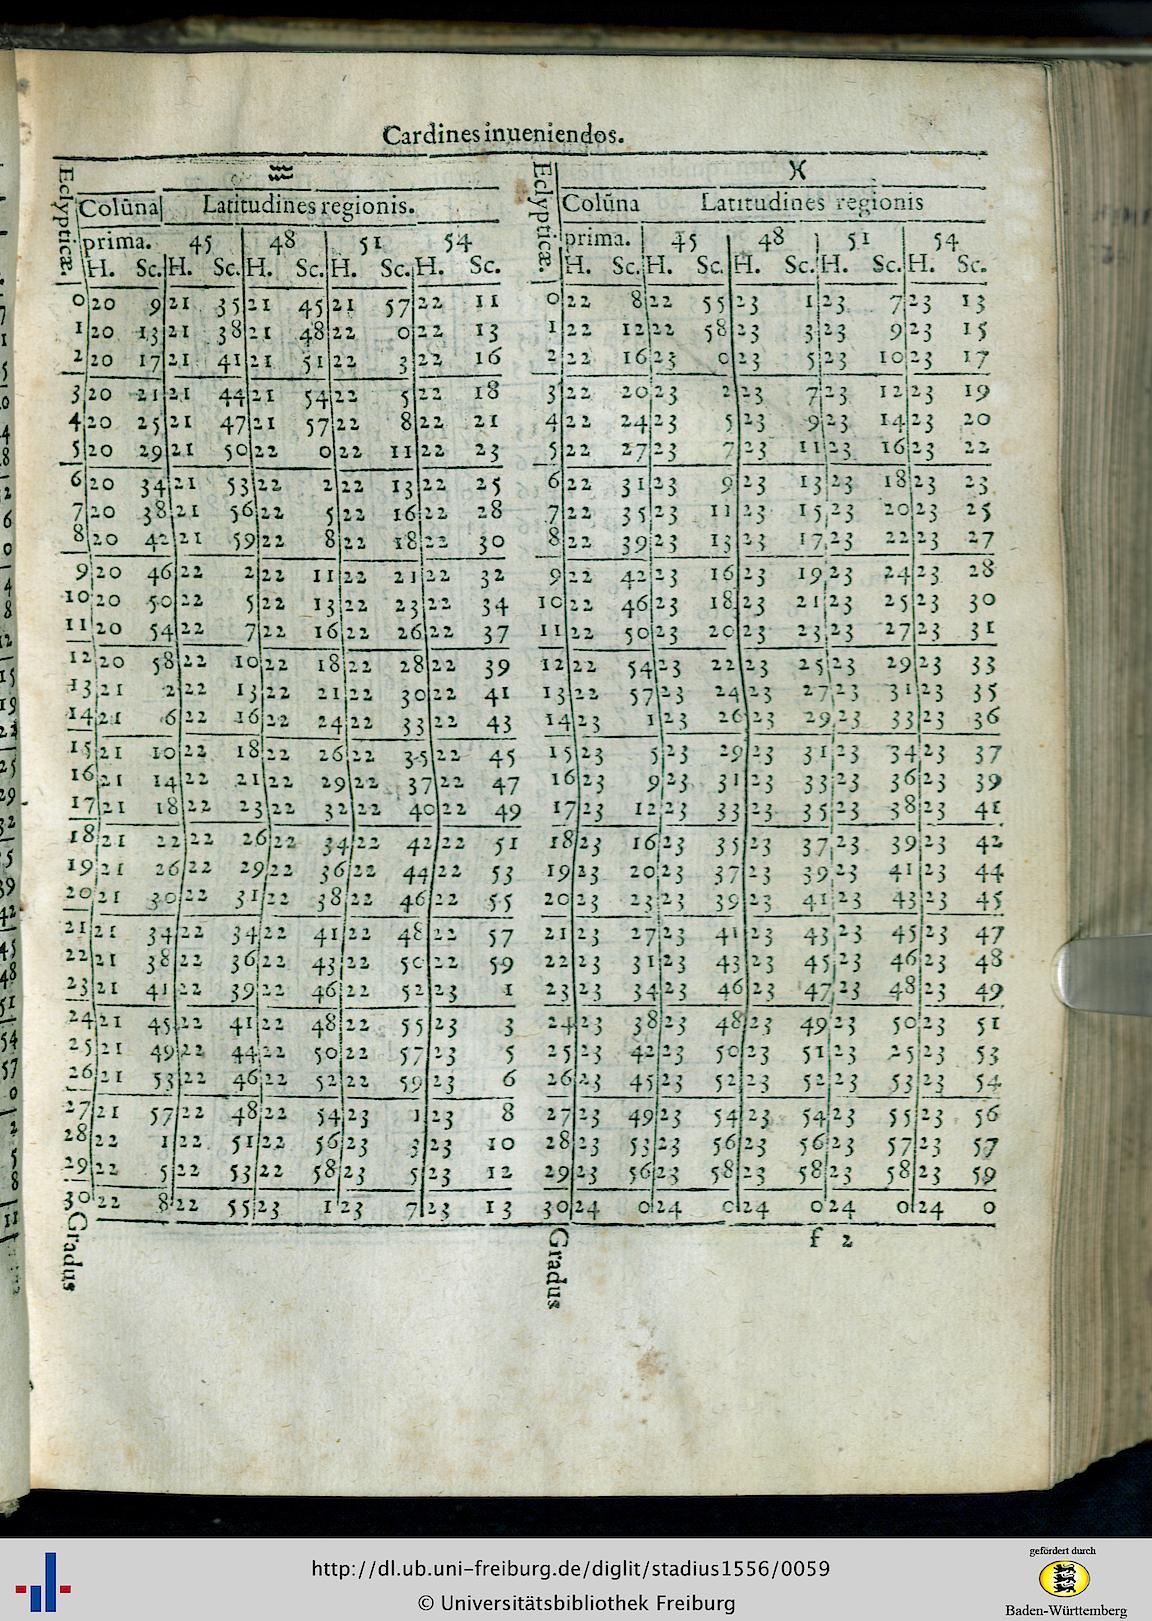 Cardines inueniendos.
♒ ♓
Eclypticæ. Colūna Latitudines regionis. Eclypticæ. Colūna Latitudines regionis
prima. 45 48 51 54 prima. 45 48 51 54
H. Sc. H. Sc. H. Sc. H. Sc. H. Sc. H. Sc. H. Sc. H. Sc. H. Sc. H. Sc.
0 20 9 21 35 21 45 21 57 22 11 0 22 8 22 55 23 1 23 7 23 13
1 20 13 21 38 21 48 22 0 22 13 1 22 12 22 58 23 3 23 9 23 15
2 20 17 21 41 21 51 22 3 22 16 2 22 16 23 0 23 5 23 10 23 17
3 20 21 21 44 21 54 22 5 22 18 3 22 20 23 2 23 7 23 12 23 19
4 20 25 21 47 21 57 22 8 22 21 4 22 24 23 5 23 9 23 14 23 20
5 20 29 21 50 22 0 22 11 22 23 5 22 27 23 7 23 11 23 16 23 22
6 20 34 21 53 22 2 22 13 22 25 6 22 31 23 9 23 13 23 18 23 23
7 20 38 21 56 22 5 22 16 22 28 7 22 35 23 11 23 15 23 20 23 25
8 20 42 21 59 22 8 22 18 22 30 8 22 39 23 13 23 17 23 22 23 27
9 20 46 22 2 22 11 22 21 22 32 9 22 42 23 16 23 19 23 24 23 28
10 20 50 22 5 22 13 22 23 22 34 10 22 46 23 18 23 21 23 25 23 30
11 20 54 22 7 22 16 22 26 22 37 11 22 50 23 20 23 23 23 27 23 31
12 20 58 22 10 22 18 22 28 22 39 12 22 54 23 22 23 25 23 29 23 33
13 21 2 22 13 22 21 22 30 22 41 13 22 57 23 24 23 27 23 31 23 35
14 21 6 22 16 22 24 22 33 22 43 14 23 1 23 26 23 29 23 33 23 36
15 21 10 22 18 22 26 22 35 22 45 15 23 5 23 29 23 31 23 34 23 37
16 21 14 22 21 22 29 22 37 22 47 16 23 9 23 31 23 33 23 36 23 39
17 21 18 22 23 22 32 22 40 22 49 17 23 12 23 33 23 35 23 38 23 41
18 21 22 22 26 22 34 22 42 22 51 18 23 16 23 35 23 37 23 39 23 42
19 21 26 22 29 22 36 22 44 22 53 19 23 20 23 37 23 39 23 41 23 44
20 21 30 22 31 22 38 22 46 22 55 20 23 23 23 39 23 41 23 43 23 45
21 21 34 22 34 22 41 22 48 22 57 21 23 27 23 41 23 43 23 45 23 47
22 21 38 22 36 22 43 22 50 22 59 22 23 31 23 43 23 45 23 46 23 48
23 21 41 22 39 22 46 22 52 23 1 23 23 34 23 46 23 47 23 48 23 49
24 21 45 22 41 22 48 22 55 23 3 24 23 38 23 48 23 49 23 50 23 51
25 21 49 22 44 22 50 22 57 23 5 25 23 42 23 50 23 51 23 25 23 53
26 21 53 22 46 22 52 22 59 23 6 26 23 45 23 52 23 52 23 53 23 54
27 21 57 22 48 22 54 23 1 23 8 27 23 49 23 54 23 54 23 55 23 56
28 22 1 22 51 22 56 23 3 23 10 28 23 53 23 56 23 56 23 57 23 57
29 22 5 22 53 22 58 23 5 23 12 29 23 56 23 58 23 58 23 58 23 59
30 22 8 22 55 23 1 23 7 23 13 30 24 0 24 0 24 0 24 0 24 0
Gradus Gradus f 2
http://dl.ub.uni-freiburg.de/diglit/stadius1556/0059
© Universitätsbibliothek Freiburg
gefördert durch
Baden-Württemberg